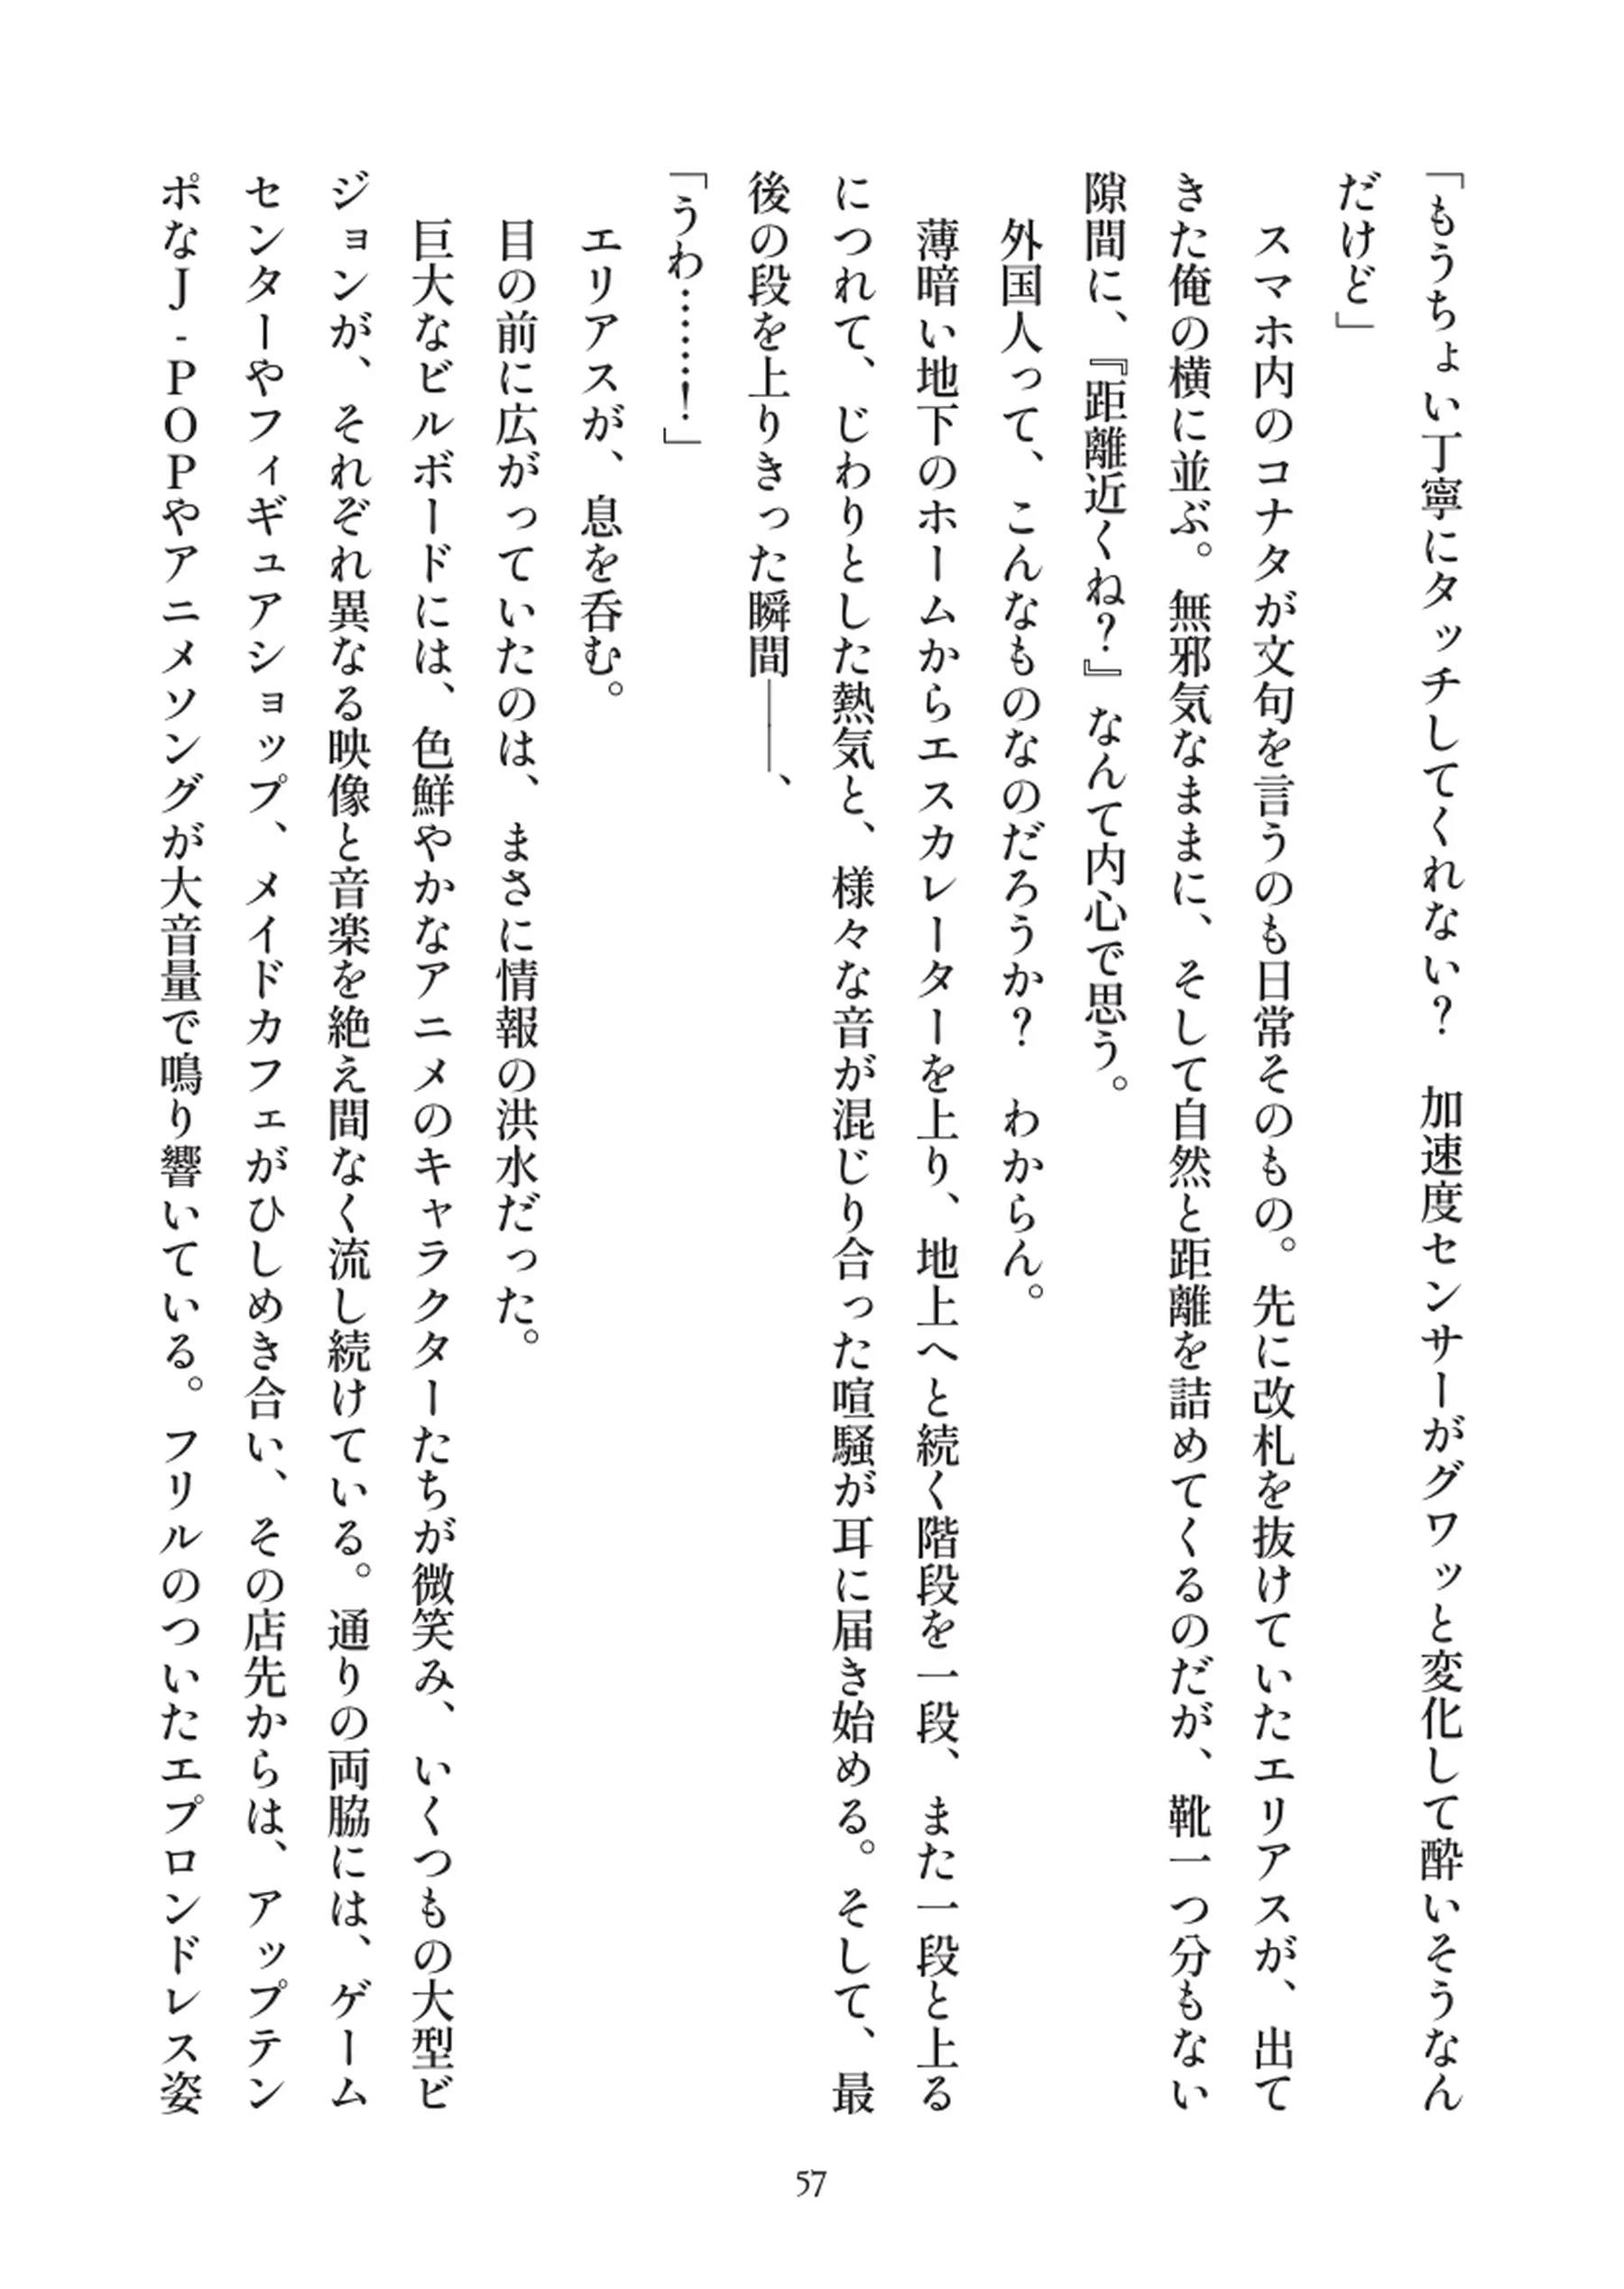 「もうちょい丁寧にタッチしてくれない？　加速度センサーがグワッと変化して酔いそうなん
だけど」
　スマホ内のコナタが文句を言うのも日常そのもの。先に改札を抜けていたエリアスが、出て
きた俺の横に並ぶ。無邪気なままに、そして自然と距離を詰めてくるのだが、靴一つ分もない
隙間に、『距離近くね？』なんて内心で思う。
　外国人って、こんなものなのだろうか？　わからん。
　薄暗い地下のホームからエスカレーターを上り、地上へと続く階段を一段、また一段と上る
につれて、じわりとした熱気と、様々な音が混じり合った喧騒が耳に届き始める。そして、最
後の段を上りきった瞬間――、
「うわ………！」
　エリアスが、息を呑む。
　目の前に広がっていたのは、まさに情報の洪水だった。
　巨大なビルボードには、色鮮やかなアニメのキャラクターたちが微笑み、いくつもの大型ビ
ジョンが、それぞれ異なる映像と音楽を絶え間なく流し続けている。通りの両脇には、ゲーム
センターやフィギュアショップ、メイドカフェがひしめき合い、その店先からは、アップテン
ポなJ-POPやアニメソングが大音量で鳴り響いている。フリルのついたエプロンドレス姿
57